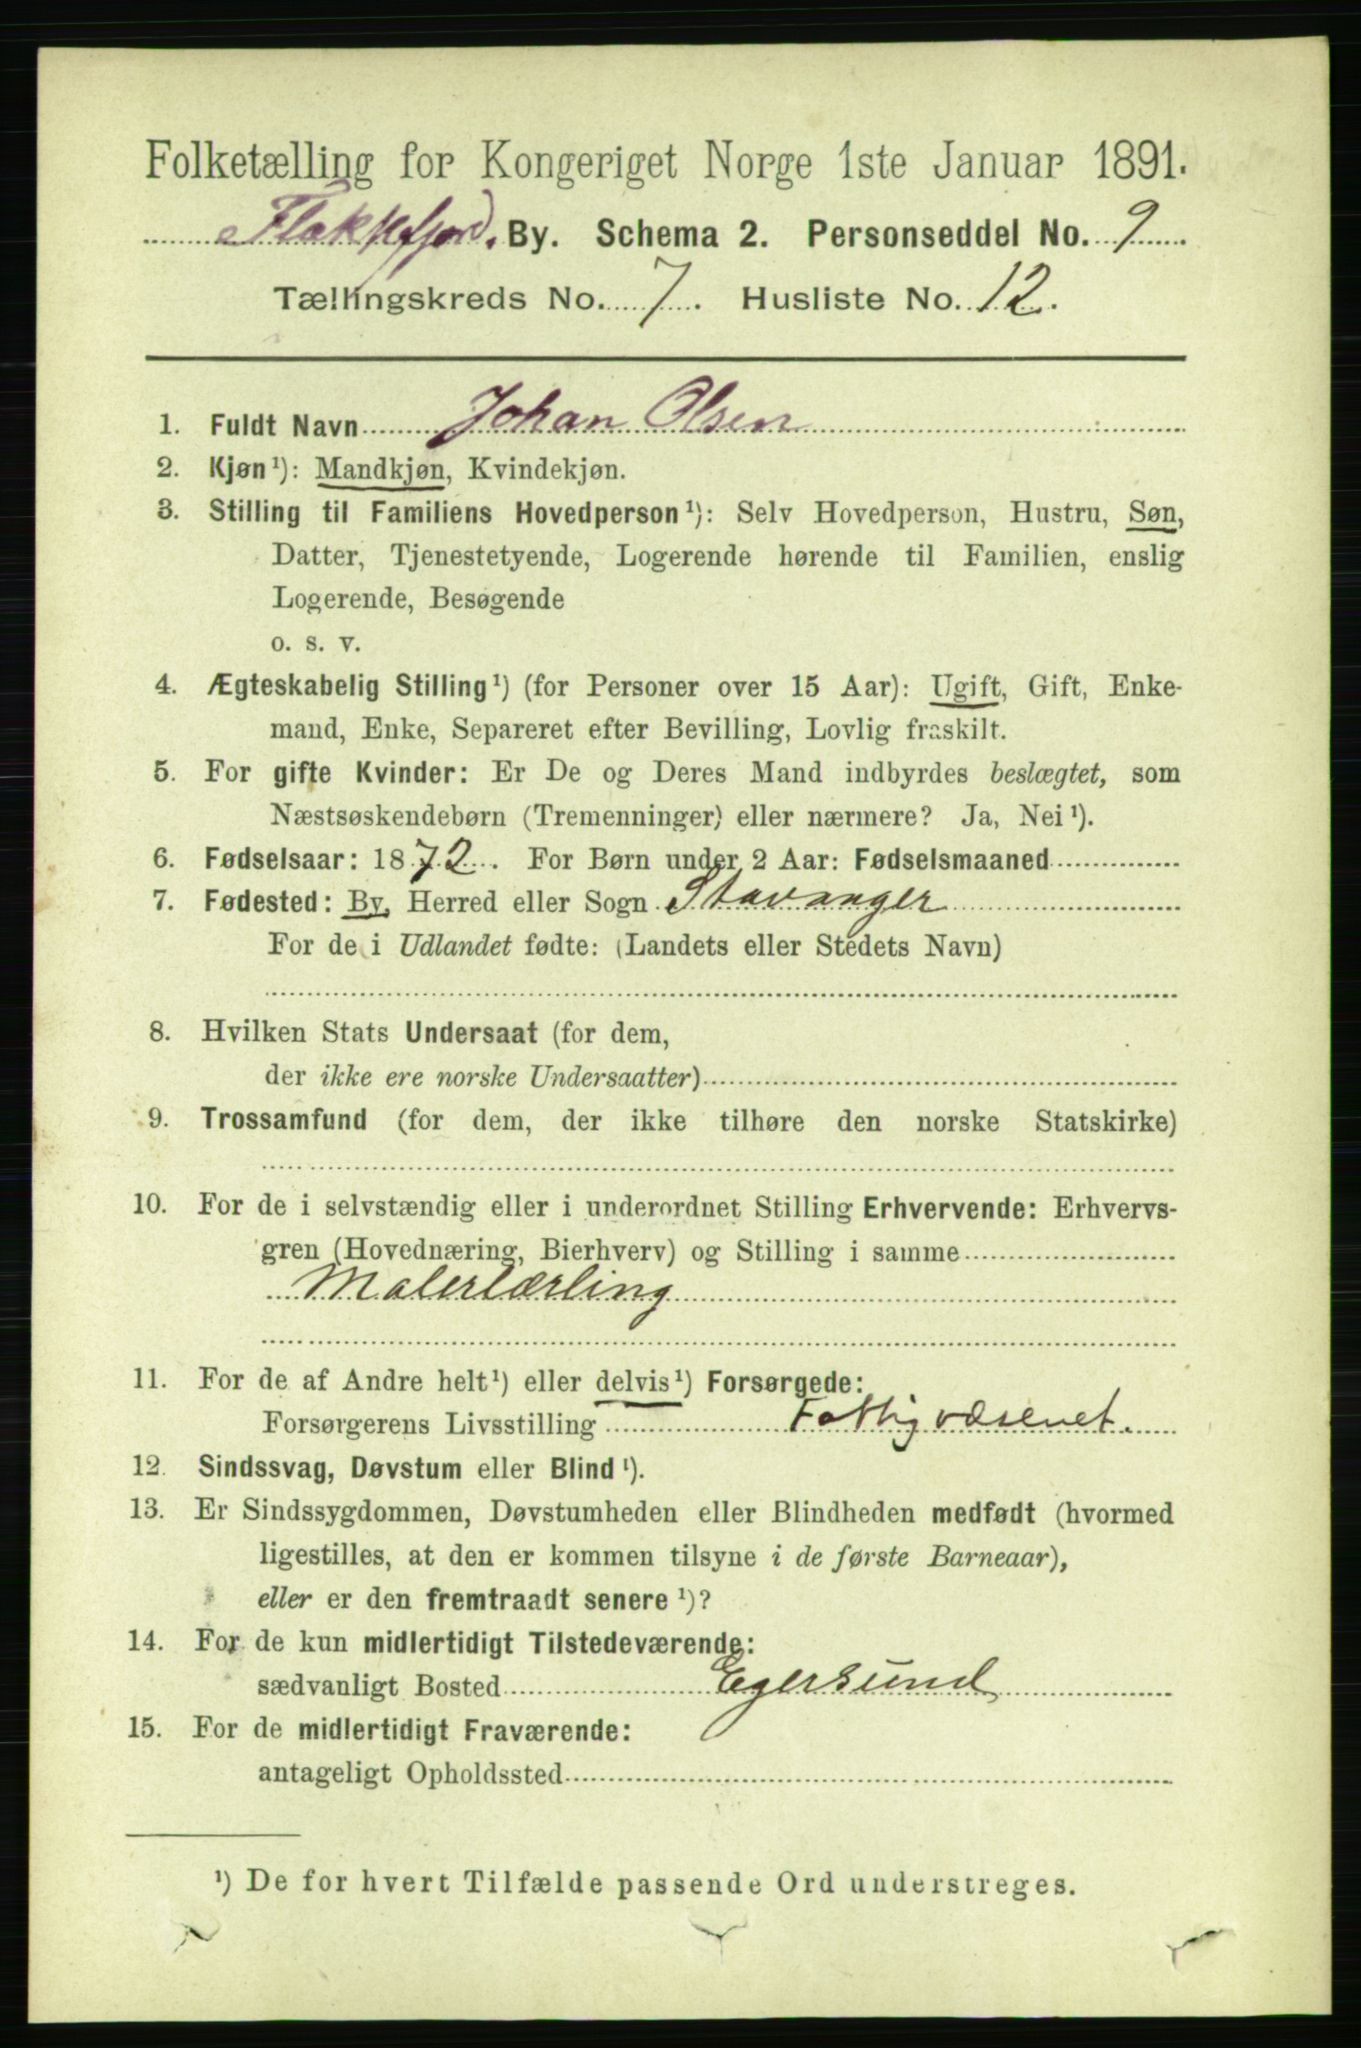 Folketælling for Kongeriget Norge 1ste Januar 1891.
Flekkefjord. By. Schema 2. Personseddel No. 9
Tællingskreds No. 7. Husliste No. 12.
1. Fuldt Navn Johan Olsen
2. Kjøn¹): Mandkjøn, Kvindekjøn.
3. Stilling til Familiens Hovedperson¹): Selv Hovedperson, Hustru, Søn,
Datter, Tjenestetyende, Logerende hørende til Familien, enslig
Logerende, Besøgende
o. s. v.
4. Ægteskabelig Stilling¹) (for Personer over 15 Aar): Ugift, Gift, Enke-
mand, Enke, Separeret efter Bevilling, Lovlig fraskilt.
5. For gifte Kvinder: Er De og Deres Mand indbyrdes beslægtet, som
Næstsøskendebørn (Tremenninger) eller nærmere? Ja, Nei¹).
6. Fødselsaar: 1872. For Børn under 2 Aar: Fødselsmaaned
7. Fødested: By, Herred eller Sogn Stavanger
For de i Udlandet fødte: (Landets eller Stedets Navn)
8. Hvilken Stats Undersaat (for dem,
der ikke ere norske Undersaatter)
9. Trossamfund (for dem, der ikke tilhøre den norske Statskirke)
10. For de i selvstændig eller i underordnet Stilling Erhvervende: Erhvervs-
gren (Hovednæring, Bierhverv) og Stilling i samme
Malerlærling
11. For de af Andre helt¹) eller delvis¹) Forsørgede:
Forsørgerens Livsstilling Fattigvæsenet.
12. Sindssvag, Døvstum eller Blind¹).
13. Er Sindssygdommen, Døvstumheden eller Blindheden medfødt (hvormed
ligestilles, at den er kommen tilsyne i de første Barneaar),
eller er den fremtraadt senere¹)?
14. For de kun midlertidigt Tilstedeværende:
sædvanligt Bosted Egersund
15. For de midlertidigt Fraværende:
antageligt Opholdssted
¹) De for hvert Tilfælde passende Ord understreges.